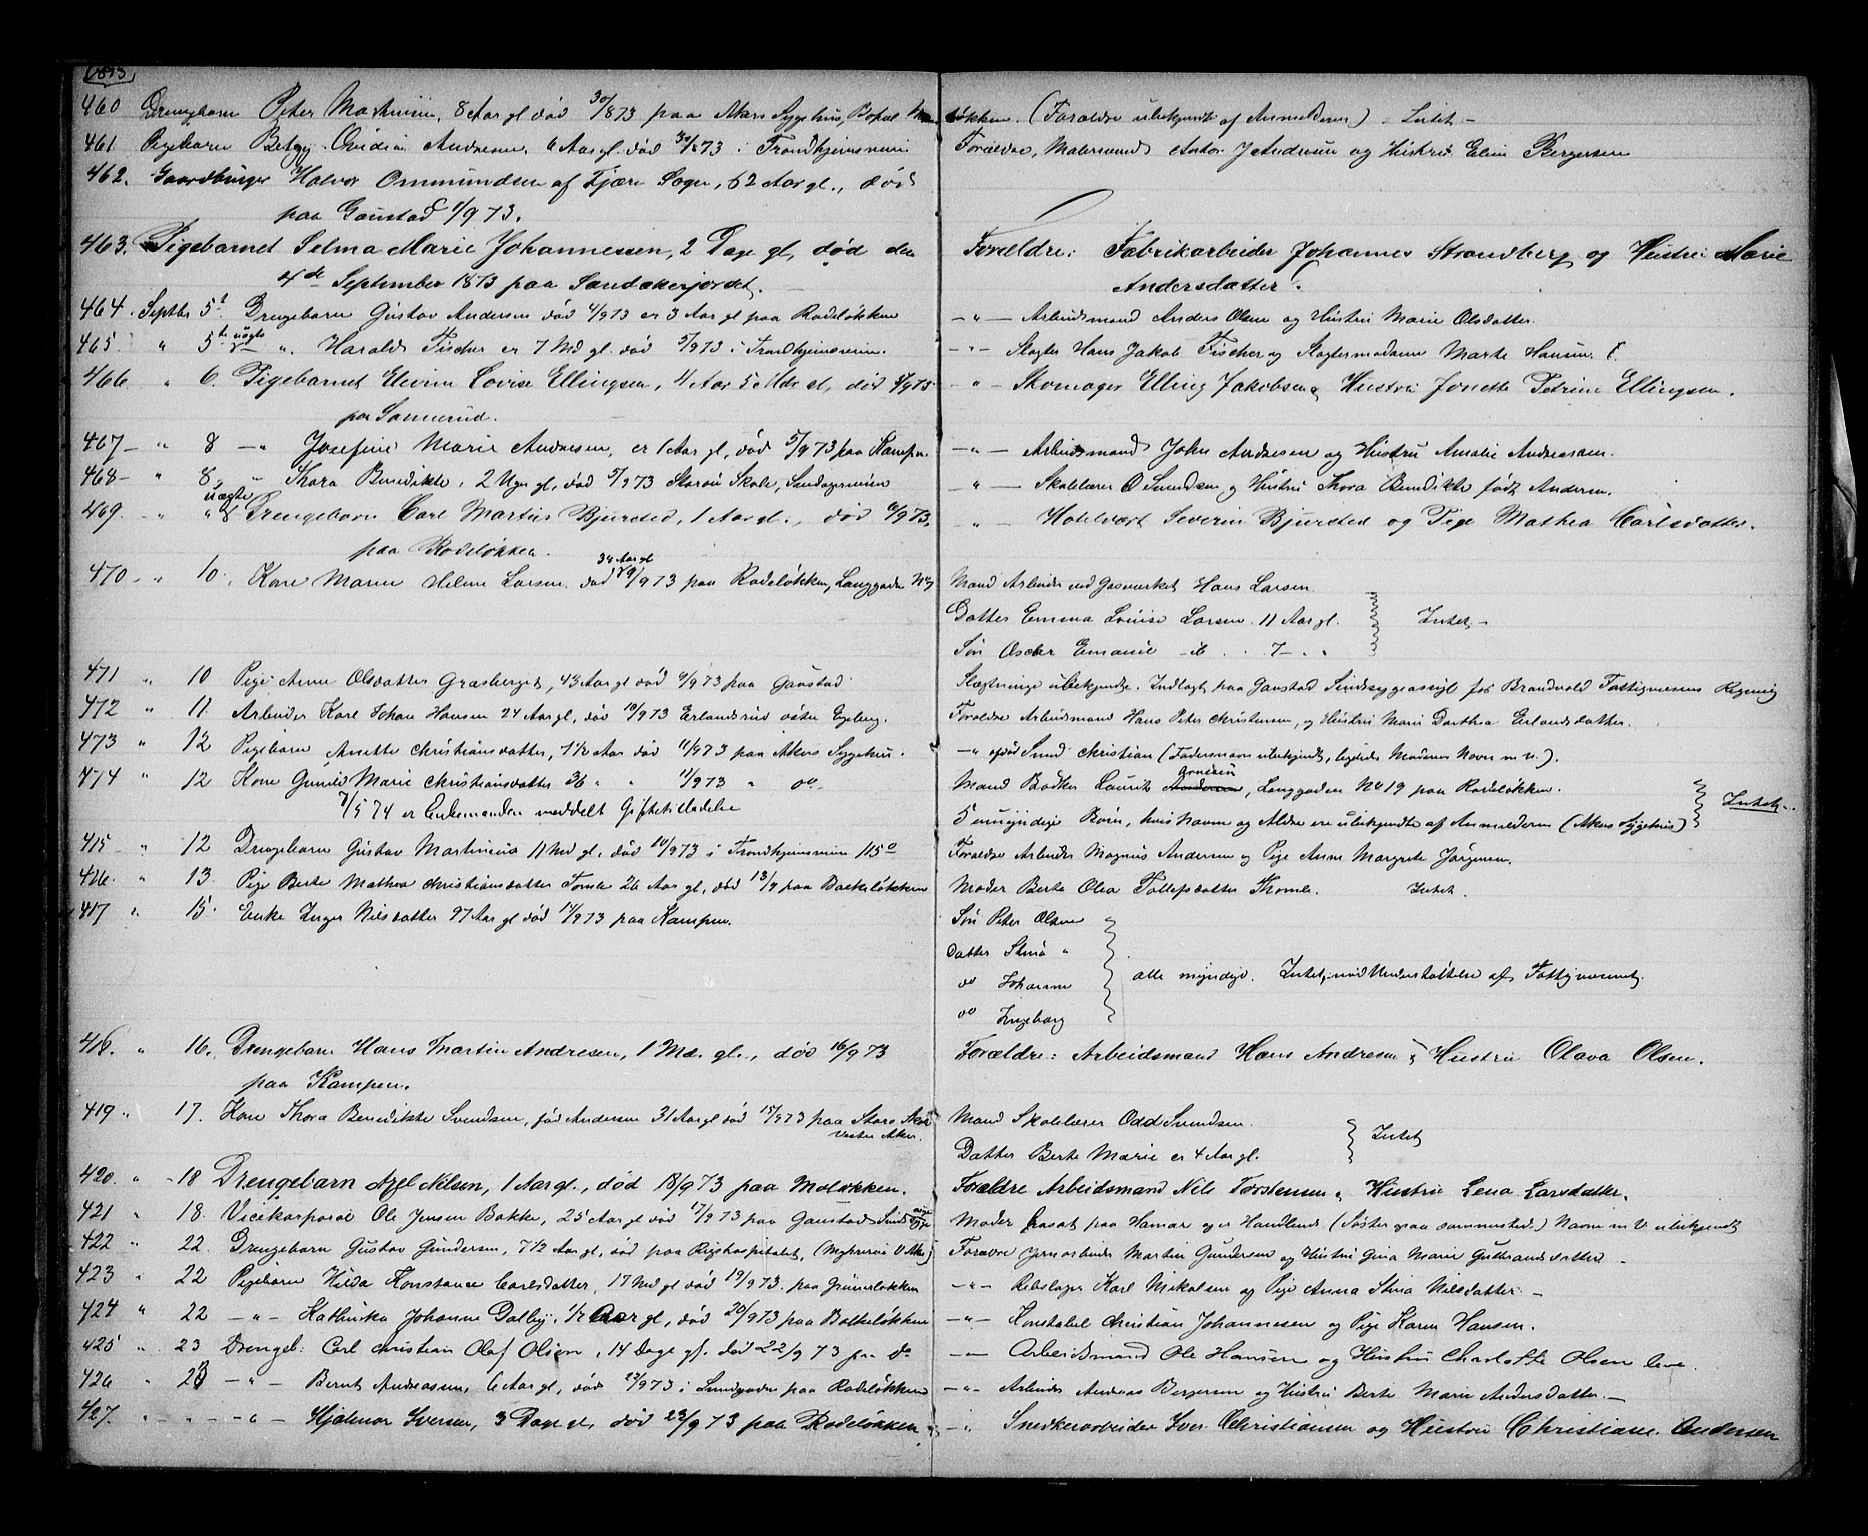 1873
460 Drengebarn Peter Martinsen, 8 Aar gl død 30/8 73 paa Akers Sygehus, Bopæl løkken. (Forældre ubekjendt af Anmelderen) - Intet -
461 Pigebarn Betzy Andresen, 6 Aar gl død 31/8 73 i Trondhjemsveien Forældre, Malersvend Anton J Andresen og Hustru Elise Bergersen
462. Gaardbruger Halvor Ommundsen af Fjære Sogn, 62 Aar gl., død
paa Gaustad 1/9 73.
463. Pigebarnet Selma Marie Johannessen, 2 Dage gl, død den Forældre: Fabrikarbeider Johannes Strandberg og Hustru Marie
4de September 1873 paa Sandakerjordet. Andersdatter.
464. Septbr 5t Drengebarn Gustav Andersen død 4/9 73 er 3 Aar gl paa Rodeløkken -"- Arbeidsmand Anders Olsen og Hustru Marie Olsdatter.
465. " 5t uægte " Harald Fischer er 7 Md gl. død 5/9 73 i Trondhjemsveien. -"- Slagter Hans Jakob Fischer og Slagtermadame Marte Hansen.
466 " 6. Pigebarnet Elevine Lovise Ellingsen, 4 Aar 5 Mdr gl, død 5/9 73 -"- Skomager Elling Jakobsen & Hustru Jonette Petrine Ellingsen.
paa Sannerud.
467 - " 8 -"- Josefine Marie Andresen, er 1 Aar gl, død 5/9 73 paa Kampen -"- Arbeidsmand John Andresen og Hustru Amalie Andreasen.
468 - " 8 " - Thora Benedikte, 2 Uger gl, død 5/9 73 Storøens Skole, Sandakerveien -"- Skolelærer O Svendsen og Hustru Thora Benedikte født Andersen.
469. " " 8 uægte Drengebarn Carl Martius Bjursted, 1 Aar gl., død 6/9 73, -"- Hotelvært Severin Bjursted og Pige Mathea Carlsdatter.
paa Rodeløkken.
470 - " 10. Kone Maren Helene Larsen 34 Aar gl død 9/9 73 paa Rodeløkken, Langgaden No Mand Arbeider ved Gasværket Hans Larsen
Datter Emma Louise Larsen 11 Aar gl. } Intet -
Søn Oscar Emanuel - " - 7 - "
471 " 10 Pige Anne Olsdatter Grasberget, 43 Aar gl død 4/9 73 paa Gaustad Slægtninge ubekjendte. Indlagt paa Gaustad Sindssygeasyl for Brandvold Fattigvæsens Regning
472 " 11. Arbeider Karl Johan Hansen 24 Aar gl, død 10/9 73 Erlandsrud østre Ekeberg. Forældre Arbeidsmand Hans Peter Christensen, og Hustru Marie Dorthea Erlandsdatter.
473 " 12 Pigebarn Anette Christiansdatter, 1 1/2 Aar død 11/9 73 paa Akers Sygehus. -"- afdød Smed Christian (Fadersnavn ubekjendt, ligeledes Moderens Navn m. v.).
474 " 12 Kone Gunild Marie Christiansdatter 36 " " 11/9 73 " do Mand Bødker Laurits Arnesen, Langgaden No 19 paa Rodeløkken.
7/5 74 er Enkemanden meddelt Giftetilladelse 5 umyndige Børn, hvis Navne og Aldre ere ubekjendte af Anmelderen (Akers Sygehus) } Intet -
415 " 12 Drengebarn Gustav Martinius 11 Md gl, død 10/9 73 i Trondhjemsveien 115 a Forældre Arbeider Magnus Andersen og Pige Anne Margrete Jørgensen.
416 " 13 Pige Berte Mathea Christiansdatter Tomle 26 Aar gl, død 13/9 paa Balkeløkken Moder Berte Olea Tollefsdatter Thomle. Intet.
417 " 15 Enke Inger Nilsdatter 97 Aar gl død 14/9 73 paa Kampen. Søn Peter Olsen
Datter Stina "
do Johanne } alle myndige. Intet, nød Understøttelse af Fattigvæsenet.
do Ingeborg
418. " 16. Drengebarn Hans Martin Andresen, 1 Md. gl., død 16/9 73 Forældre: Arbeidsmand Hans Andresen & Hustru Olava Olsen.
paa Kampen.
419 " 17. Kone Thora Benedikte Svendsen, fød Andersen 31 Aar gl død 15/9 73 paa Storø Skole Vestre Aker. Mand Skolelærer Odd Svendsen.
Datter Berte Marie er 4 Aar gl. } Intet
420. " - 18 Drengebarn Axel Nilsen, 1 Aar gl., død 18/9 73 paa Moløkken. Forældre Arbeidsmand Nils Torstensen & Hustru Lena Larsdatter.
421 " 18. Vicekorporal Ole Jensen Bakke, 25 Aar gl død 17/9 73 paa Gaustad Sindssygeasyl Moder bosat paa Hamar og er Handlende (Søster paa sammested.) Navn m V. ubekjendt
422 " 22. Drengebarn Gustav Gundersen, 7 1/2 Aar gl, død paa Rigshospitalet, Forældre Jernarbeider Martin Gundersen og Hustru Gina Marie Gulbrandsdatter -
423 " 22 Pigebarn Hilda Konstance Carlsdatter, 17 Md gl død 19/9 73. paa Grünerløkken -"- Rebslager Karl Nikolsen og Pige Anna Stina Nilsdatter -
424 " 22 -"- Kathinka Johanne Dalby. 1/2 Aar gl, død 20/9 73 paa Balkeløkken -"- Konstabel Christian Johannesen og Pige Karen Hansen.
425 " 23 Drengeb: Carl Christian Olaf Olsen, 14 Dage gl. død 22/9 73 paa do -"- Arbeidsmand Ole Hansen og Hustru Charlotte Olsen leve.
426 " 23 -"- Bernt Andreassen, 6 Aar gl, død 23/9 73 i Lundgaden paa Rodeløkken -"- Arbeider Andreas Bergersen og Hustru Berte Marie Andersdatter. -
427. " - " - -"- Hjalmar Iversen, 3 Dage gl, død 23/9 73 paa Rodeløkken, -"- Snedkerarbeider Iver Christiansen og Hustru Christiane Andersen